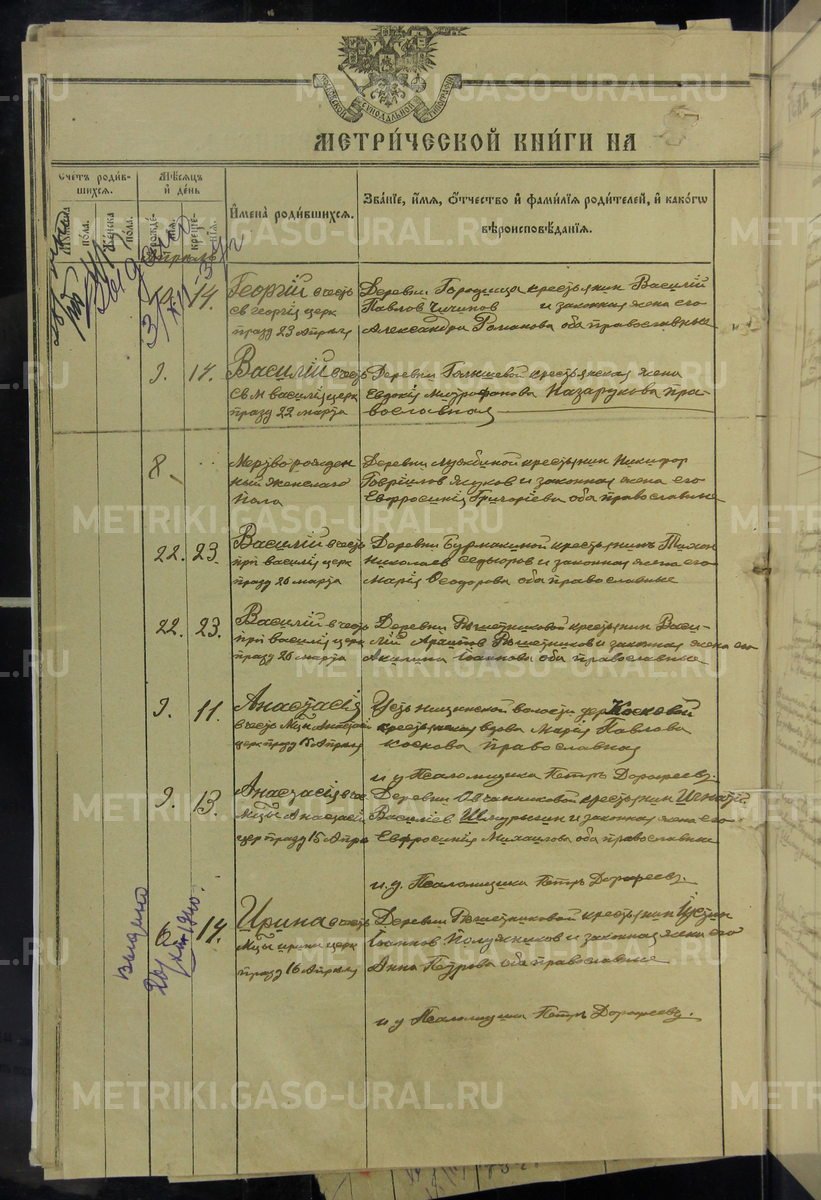 МЕТРИ́ЧЕСКОЙ КНИ́ГИ НА
Счетъ роди́вшихся.
Мѣ́сяцъ и҆ де́нь
И҆мена̀ роди́вшихся.
Зва́нїе, и҆́мѧ, ѻ҆́тчество и҆ фами́лїѧ роди́телей, и҆ како́гѡ
вѣроисповѣ́данїѧ.
Апрѣль
14. Георгій въ честь
св георгія церк
празд 23 Апрѣля
Деревни Городища крестьянин Василій
Павлов и законная жена его
Александра Романова оба православные
9. 14. Василій в честь
св М василія церк
празд 22 марта
Деревни крестьянская жена
Евдокія Митрофанова Назарукова пра-
вославная
8 Мертворожден
ный женскаго
пола
Деревни крестьянин Никифор
Гаврилов и законная жена его
Евфросинія Григоріева оба православные
22. 23. Василій в честь
прп василія церк
празд 26 марта
Деревни Бурмакиной крестьянинъ Тихон
Николаев и законная жена его
Марія Феодорова оба православные
22. 23. Василій в честь
прп василія церк
празд 26 марта
Деревни Рѣшетниковой крестьянин Васи-
лій Рѣшетников и законная жена его
Акилина Іоаннова оба православные
9. 11. Анастасія
в честь Мц Анастасіи
церк празд 15 Апрѣля
Усть ницинской волости дер Косковой
крестьянская вдова Марія Павлова
Коскова православная
и д Псаломщика Петръ Дорофеевъ.
9. 13. Анастасія в че
Мцы Анастасіи
цер празд 15 Апрѣ
Деревни Овчинниковой крестьянин Игнатій
Василіев Шмурыгин и законная жена его
Евфросинія Михаилова оба православные
и. д. Псаломщика Петръ Дорофеевъ.
6 14. Ирина в честь
Мцы ирины церк
празд 16 Апрѣля
Деревни Рѣшетниковой крестьянин Іустин
Іоаннов Полужников и законная жена его
Анна Петрова оба православные
и д Псаломщика Петръ Дорофеевъ.
Выдано
20/XII 1940.
METRIKI.GASO-URAL.RU